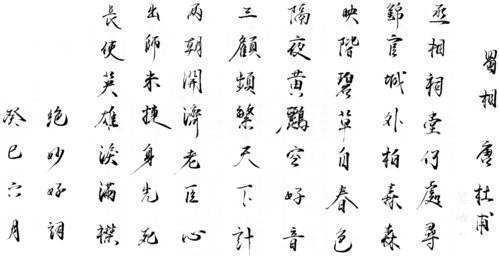 蜀相 唐 杜甫
丞相祠堂何處尋
錦官城外柏森森
映階碧草自春色
隔夜黃鸝空好音
三顧頻繁天下計
兩朝開濟老臣心
出師未捷身先死
長使英雄淚滿襟
絕妙好詞
癸巳六月